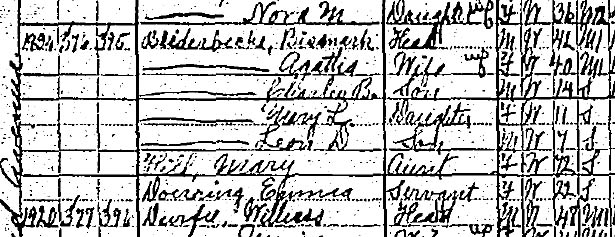 —— Nora M. Daughter F W 36
1924 376 395 Biederbecke, Bismark Head M W 42 M1
—— Agatha Wife F W 40 M
—— Charles B. Son M W 14 S
—— Mary L. Daughter F W 11 S
—— Leon B Son M W 7 S
Hill, Mary Aunt F W 72 S
Doerring, Emma Servant F W 22 S
1920 377 396 Head M W 47 M